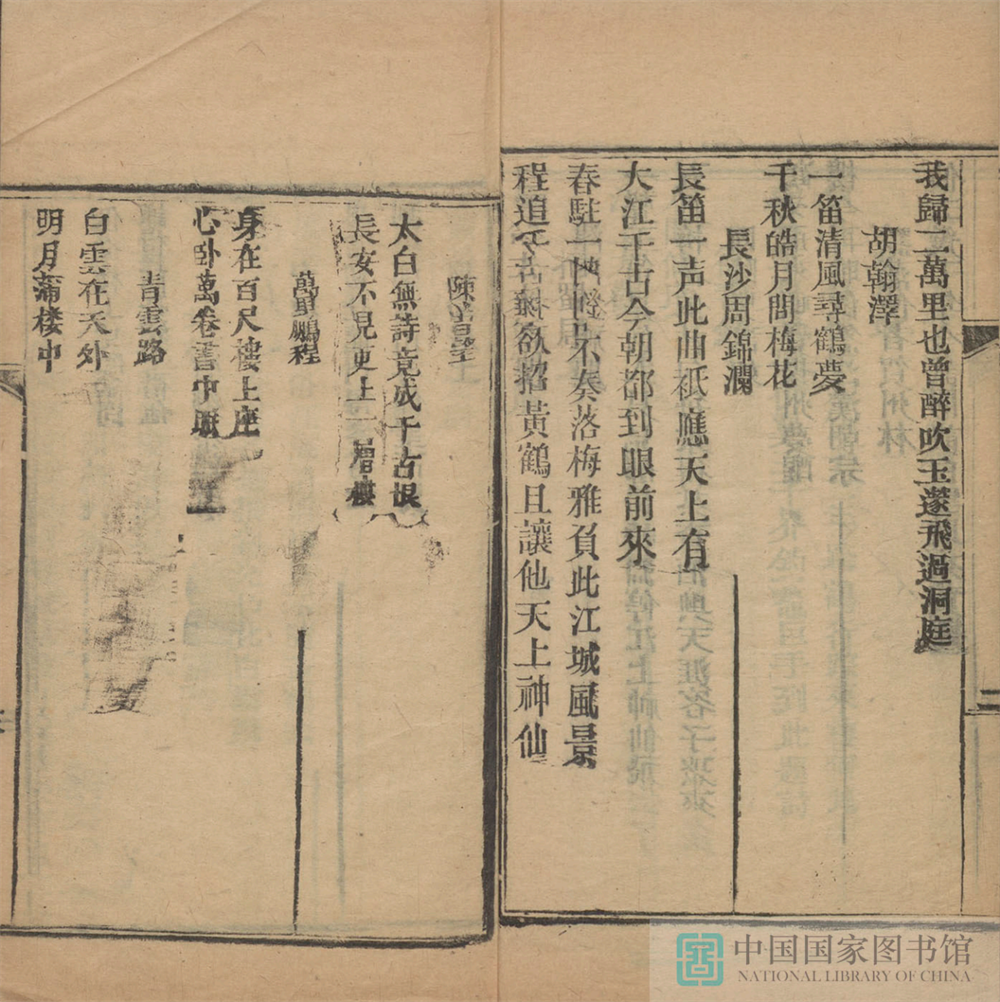 我歸二萬里也曾醉吹玉邃飛過洞庭
胡翰澤
一笛清風尋鶴夢
千秋皓月問梅花
長沙周錦瀾
長笛一声此曲祇應天上有
大江千古今朝都到眼前來
春駐一不奏落梅雅負此江城風景
程追欲招黃鶴且讓他天上神仙
陳
太白無詩竟成千古恨
長安不見更上一層樓
萬里鵬程
身在百尺樓上座
心卧萬卷書中
青雲路
白雲在天外
明月滿樓中
中国国家图书馆
NATIONAL LIBRARY OF CHINA